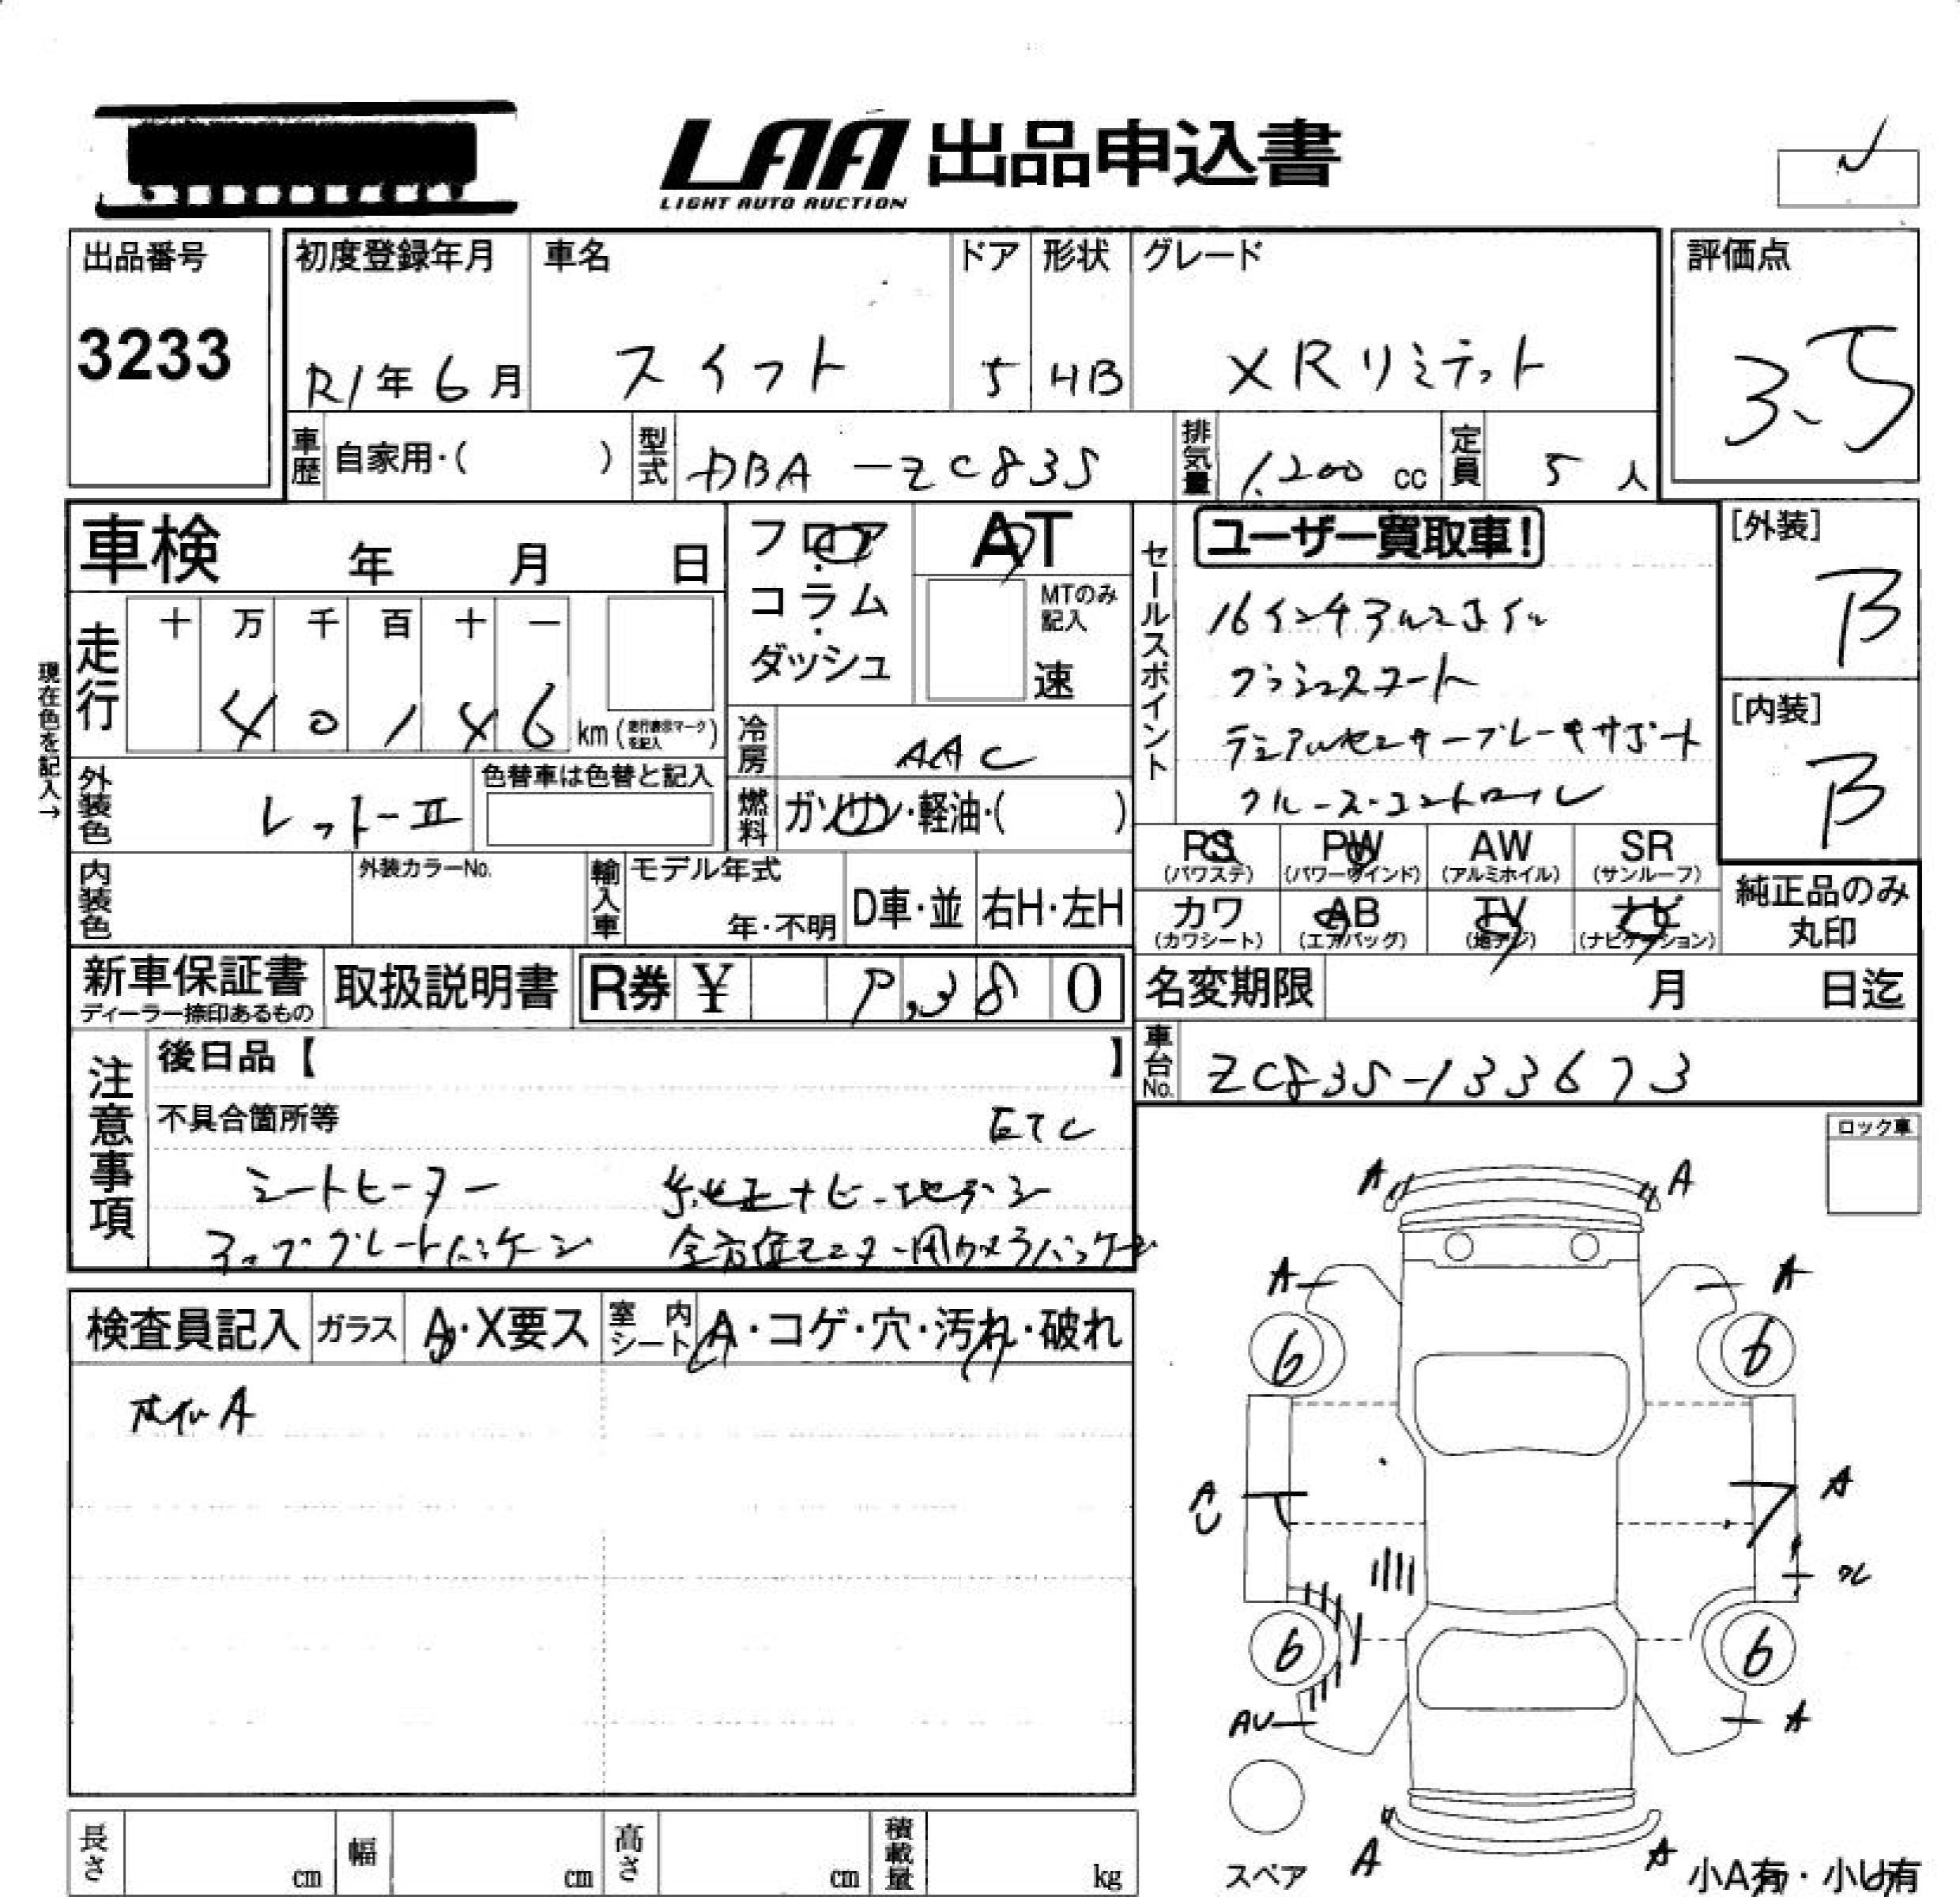 LAA 出品申込書
LIGHT AUTO AUCTION
出品番号
3233
初度登録年月
R1年6月
車名
スイフト
ドア
5
形状
HB
グレード
XRリミテット
評価点
3.5
車歴
自家用・( )
型式
DBA-ZC83S
排気量
1,200 cc
定員
5 人
車検 年 月 日
フロア・コラム・ダッシュ
AT
MTのみ記入
速
現在色を記入→
走行
十 万 千 百 十 一
4 0 1 4 6 km (走行表示マークを記入)
冷房
AAC
外装色
レット-II
色替車は色替と記入
燃料
ガソリン・軽油・( )
内装色
外装カラーNo.
輸入車
モデル年式
年・不明
D車・並
右H・左H
セールスポイント
ユーザー買取車!
16インチアルミホイル
プラミュスコート
デュアルセンサーブレーキサポート
クルーズ・コントロール
[外装]
B
[内装]
B
PS (パワステ)
PW (パワーウインド)
AW (アルミホイル)
SR (サンルーフ)
カワ (カワシート)
AB (エアバッグ)
TV (地デジ)
ナビ (ナビゲーション)
純正品のみ丸印
新車保証書
ディーラー捺印あるもの
取扱説明書
R券 ¥ 9,380
名変期限 月 日迄
車台No.
ZC83S-133673
注意事項
後日品【 】
不具合箇所等
ETC
シートヒーター 純正ナビ-地デジ
アップグレードパッケージ 全方位モニター用カメラパッケージ
検査員記入
ガラス
A・X要ス
室内シート
A・コゲ・穴・汚れ・破れ
ホイルA
ロック車
A A
A A
6 6
AU A
6 6
AU A
スペア
A A
小A有・小U有
長さ cm
幅 cm
高さ cm
積載量 kg